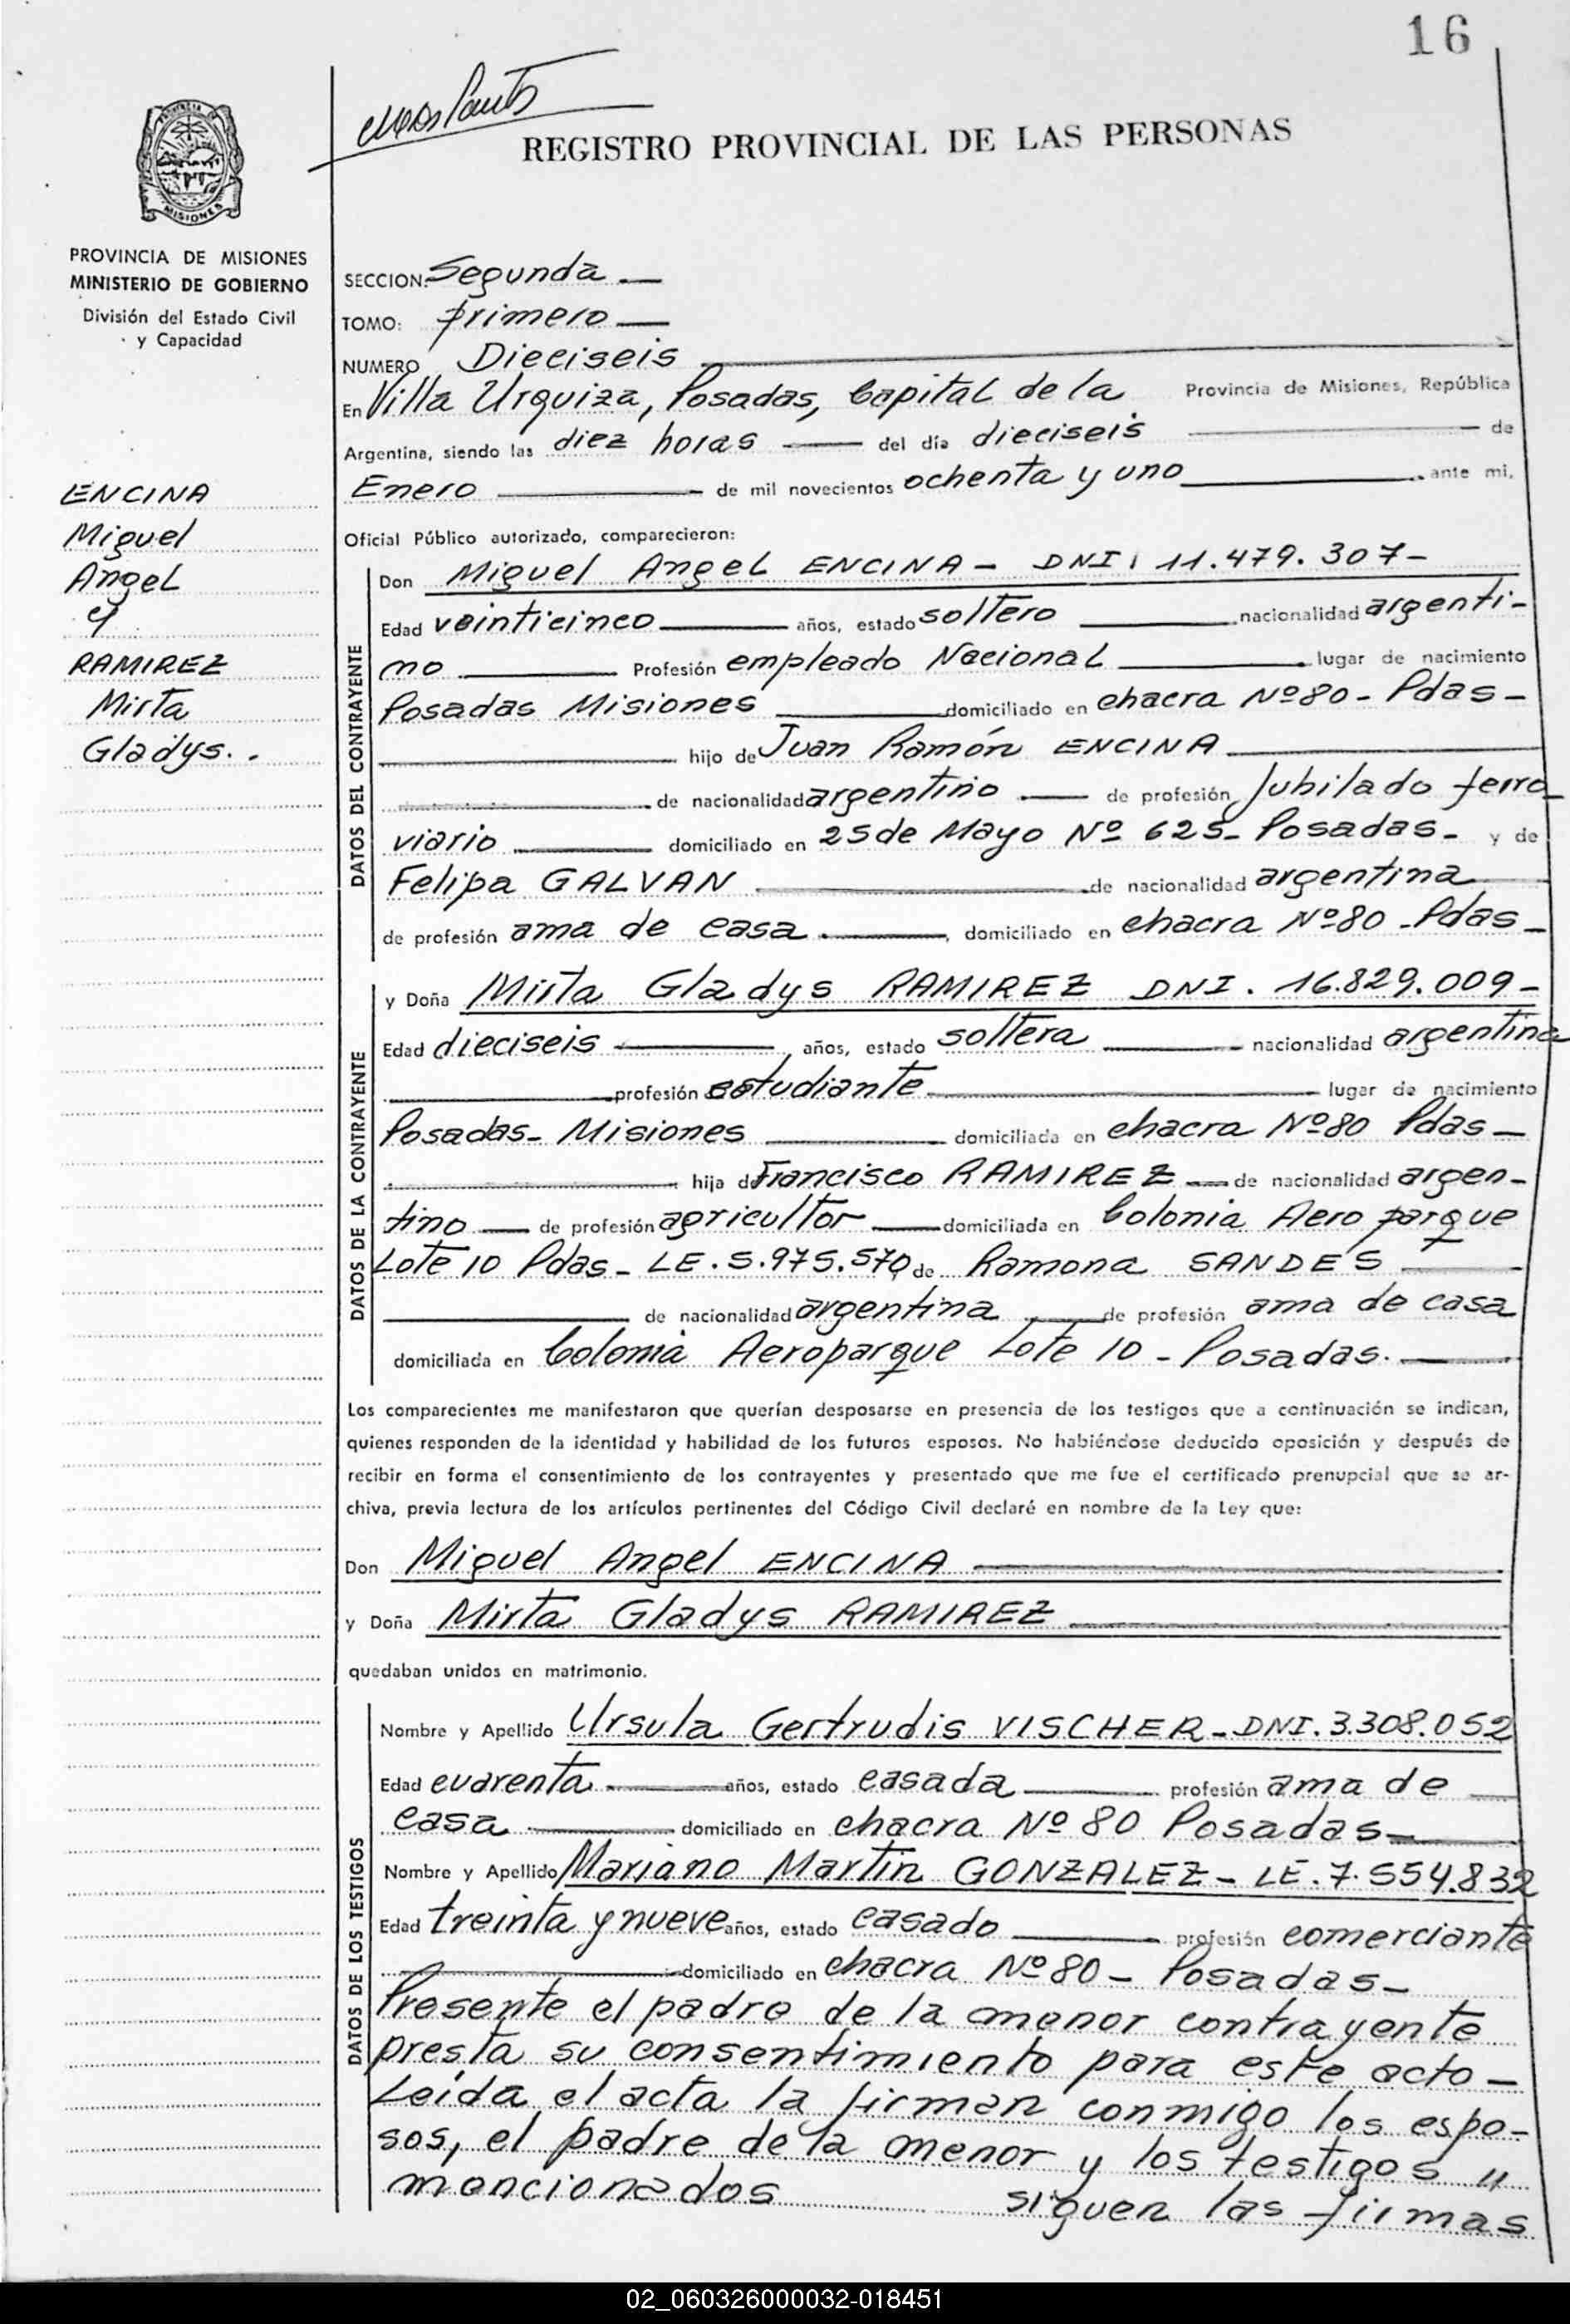 16
REGISTRO PROVINCIAL DE LAS PERSONAS
PROVINCIA
MISIONES
PROVINCIA DE MISIONES
MINISTERIO DE GOBIERNO
División del Estado Civil
y Capacidad
ENCINA
Miguel
Angel
y
RAMIREZ
Mirta
Gladys..
SECCION: Segunda
TOMO: primero
NUMERO Dieciseis
En Villa Urquiza, Posadas, Capital de la Provincia de Misiones, República
Argentina, siendo las diez horas del día dieciseis de
Enero de mil novecientos ochenta y uno ante mi,
Oficial Público autorizado, comparecieron:
DATOS DEL CONTRAYENTE
Don Miguel Angel ENCINA - DNI: 11.479.307-
Edad veinticinco años, estado soltero nacionalidad argenti-
no Profesión empleado Nacional lugar de nacimiento
Posadas Misiones domiciliado en chacra Nº 80 - Pdas -
hijo de Juan Ramón ENCINA
de nacionalidad argentino de profesión Jubilado ferro
viario domiciliado en 25 de Mayo Nº 625- Posadas- y de
Felipa GALVAN de nacionalidad argentina
de profesión ama de casa, domiciliado en chacra Nº 80 - Pdas -
DATOS DE LA CONTRAYENTE
y Doña Mirta Gladys RAMIREZ DNI. 16.829.009-
Edad dieciseis, años, estado soltera nacionalidad argentina
profesión estudiante lugar de nacimiento
Posadas- Misiones domiciliada en chacra Nº 80 Pdas -
hija de Francisco RAMIREZ de nacionalidad argen-
tino de profesión agricultor domiciliada en Colonia Aeroparque
Lote 10 Pdas - LE. 5.975.570 de Ramona SANDES
de nacionalidad argentina de profesión ama de casa
domiciliada en Colonia Aeroparque Lote 10 - Posadas.
Los comparecientes me manifestaron que querían desposarse en presencia de los testigos que a continuación se indican,
quienes responden de la identidad y habilidad de los futuros esposos. No habiéndose deducido oposición y después de
recibir en forma el consentimiento de los contrayentes y presentado que me fue el certificado prenupcial que se ar-
chiva, previa lectura de los artículos pertinentes del Código Civil declaré en nombre de la Ley que:
Don Miguel Angel ENCINA
y Doña Mirta Gladys RAMIREZ
quedaban unidos en matrimonio.
DATOS DE LOS TESTIGOS
Nombre y Apellido Ursula Gertrudis VISCHER - DNI. 3.308.052
Edad cuarenta años, estado casada profesión ama de
casa domiciliado en chacra Nº 80 Posadas-
Nombre y Apellido Mariano Martin GONZALEZ - LE. 7.554.832
Edad treinta y nueve años, estado casado profesión comerciante
domiciliado en chacra Nº 80 - Posadas-
Presente el padre de la menor contrayente
presta su consentimiento para este acto -
Leida el acta la firman conmigo los espo-
sos, el padre de la menor y los testigos "
mencionados siguen las firmas
02_060326000032-018451